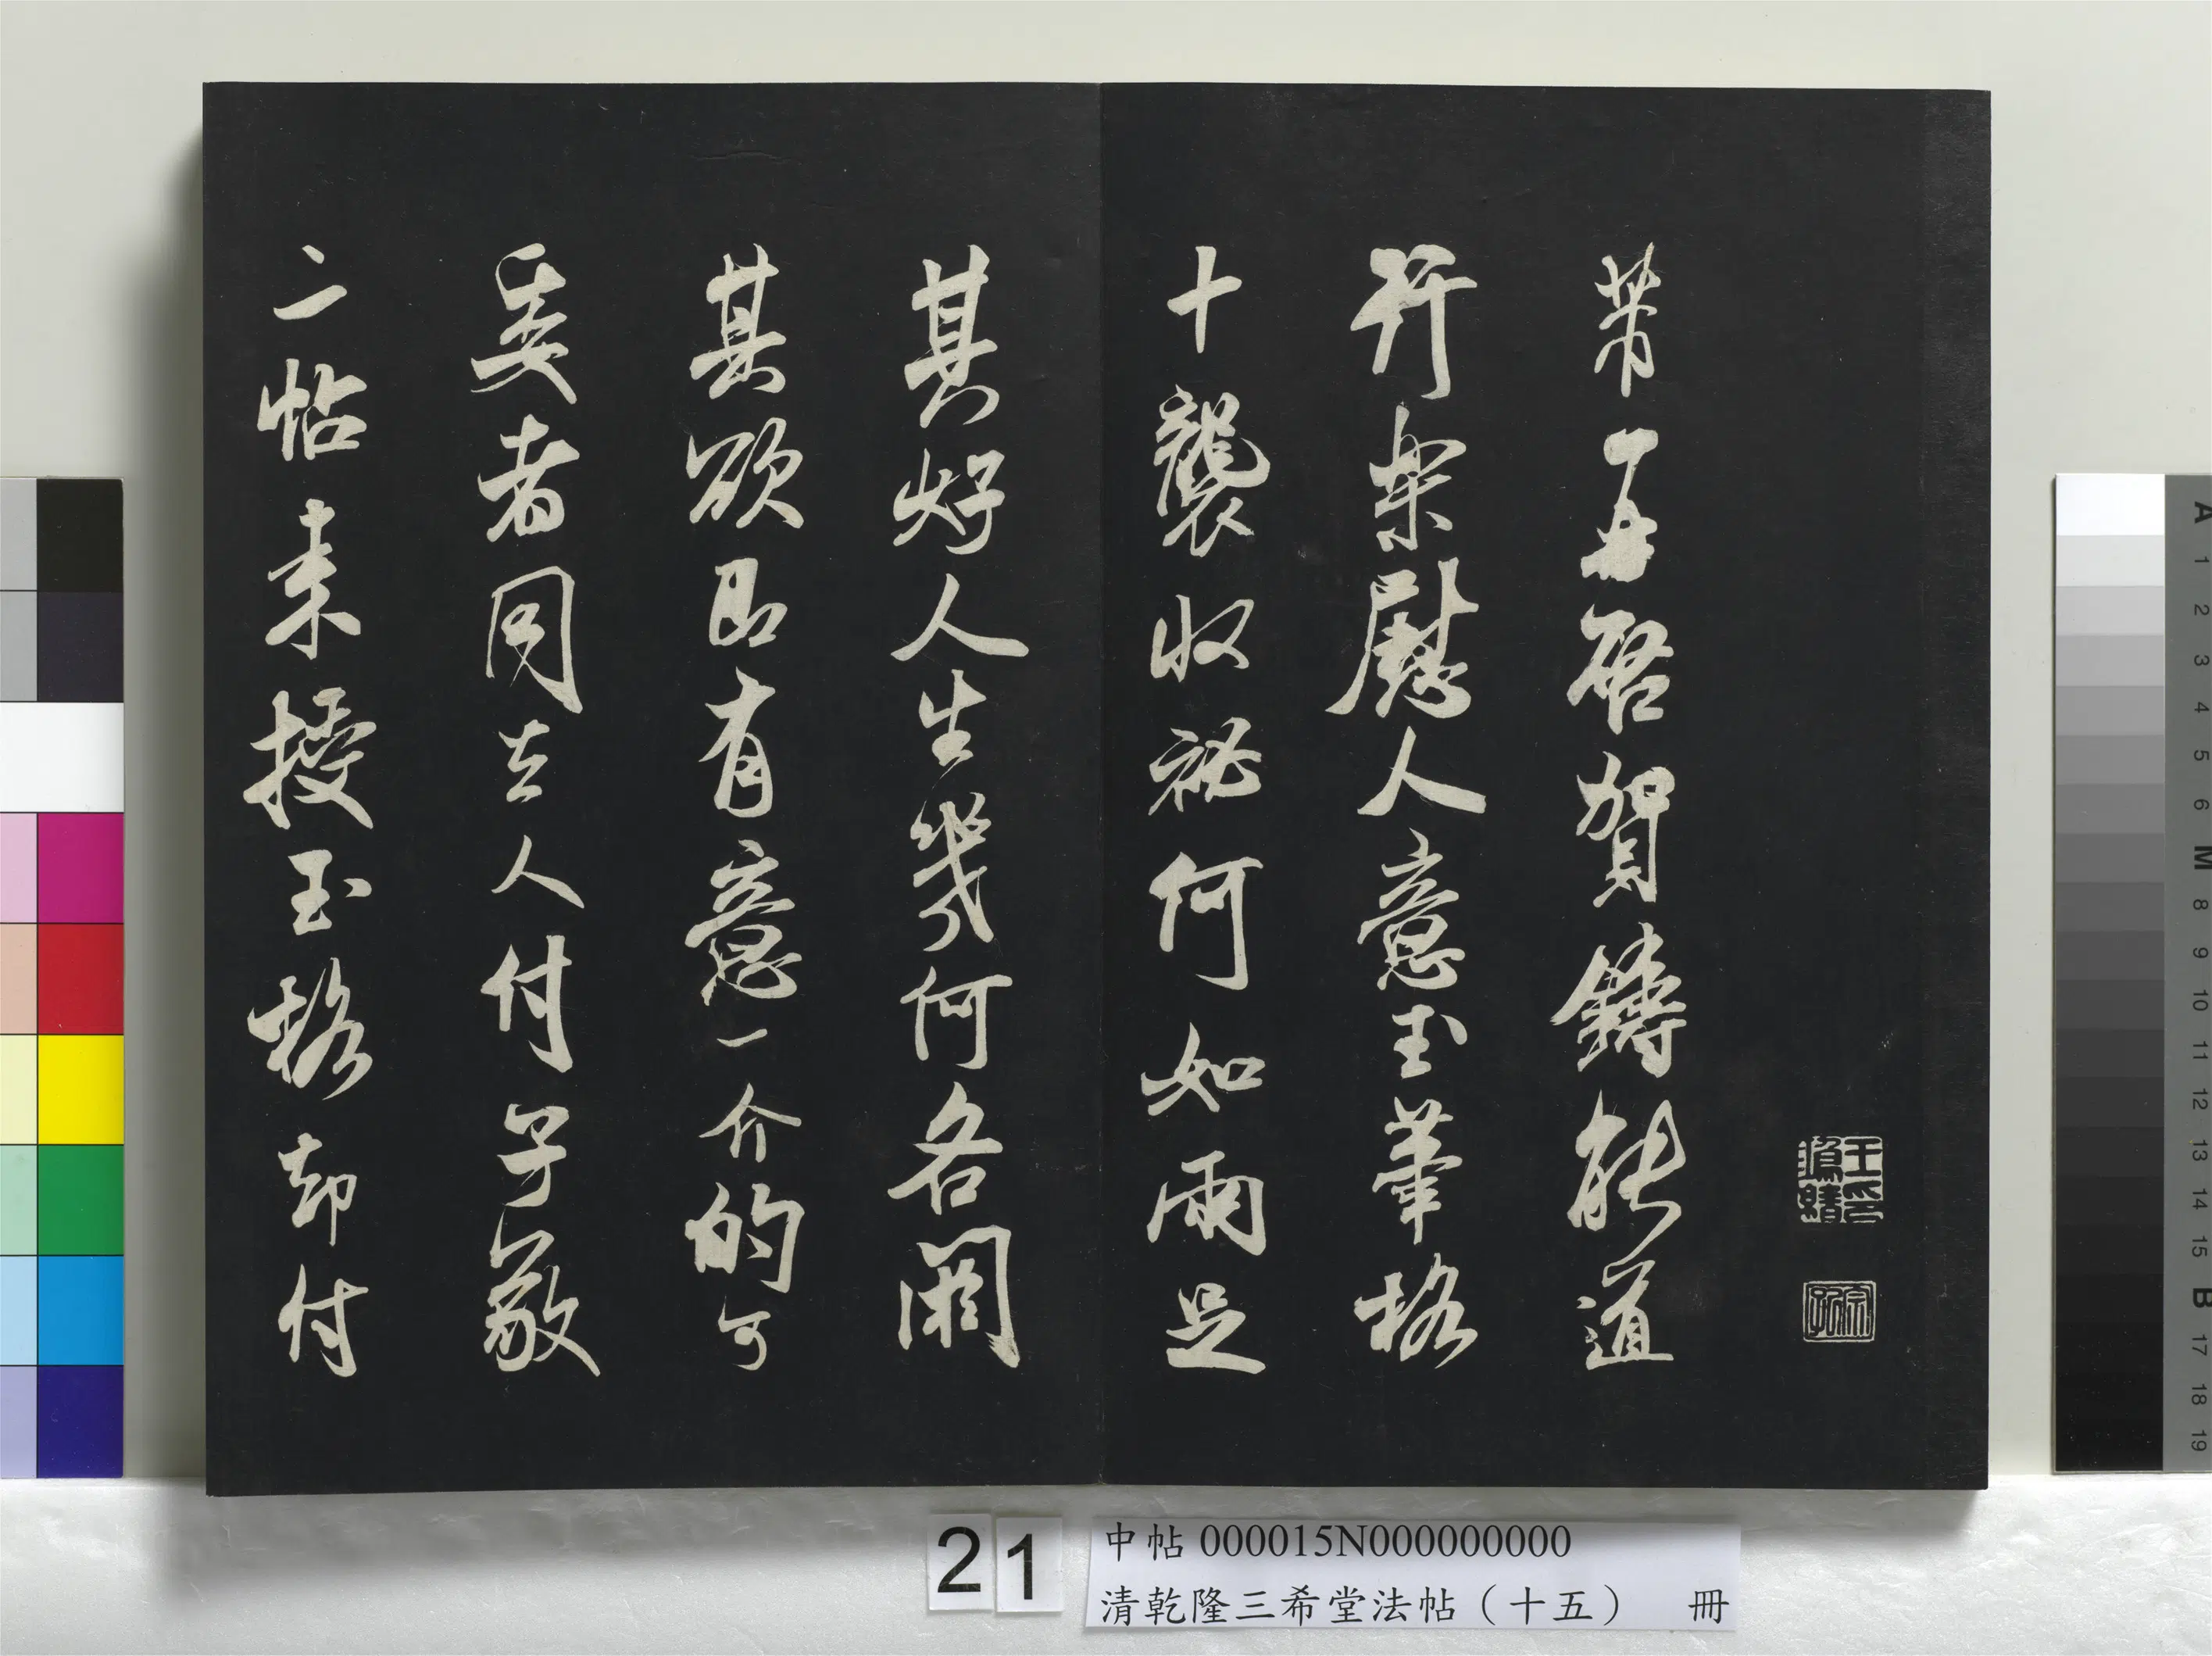 王印鴻緒
芾再啓賀鑄能道
行樂慰人意玉筆格
十襲收祕何如兩足
其好人生幾何各閼
其欲即有意一介的可
委者同去人付子敬
二帖来授玉格却付
21
中帖 000015N000000000
清乾隆三希堂法帖(十五) 冊
A 1 2 3 4 5 6 M 8 9 10 11 12 13 14 15 B 17 18 19